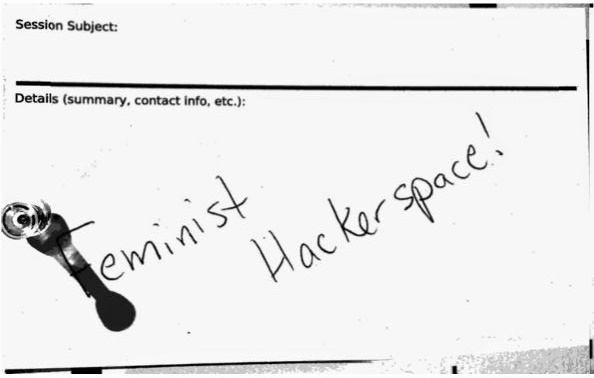 Session Subject:
Details (summary, contact info, etc.):
Feminist
Hackerspace!